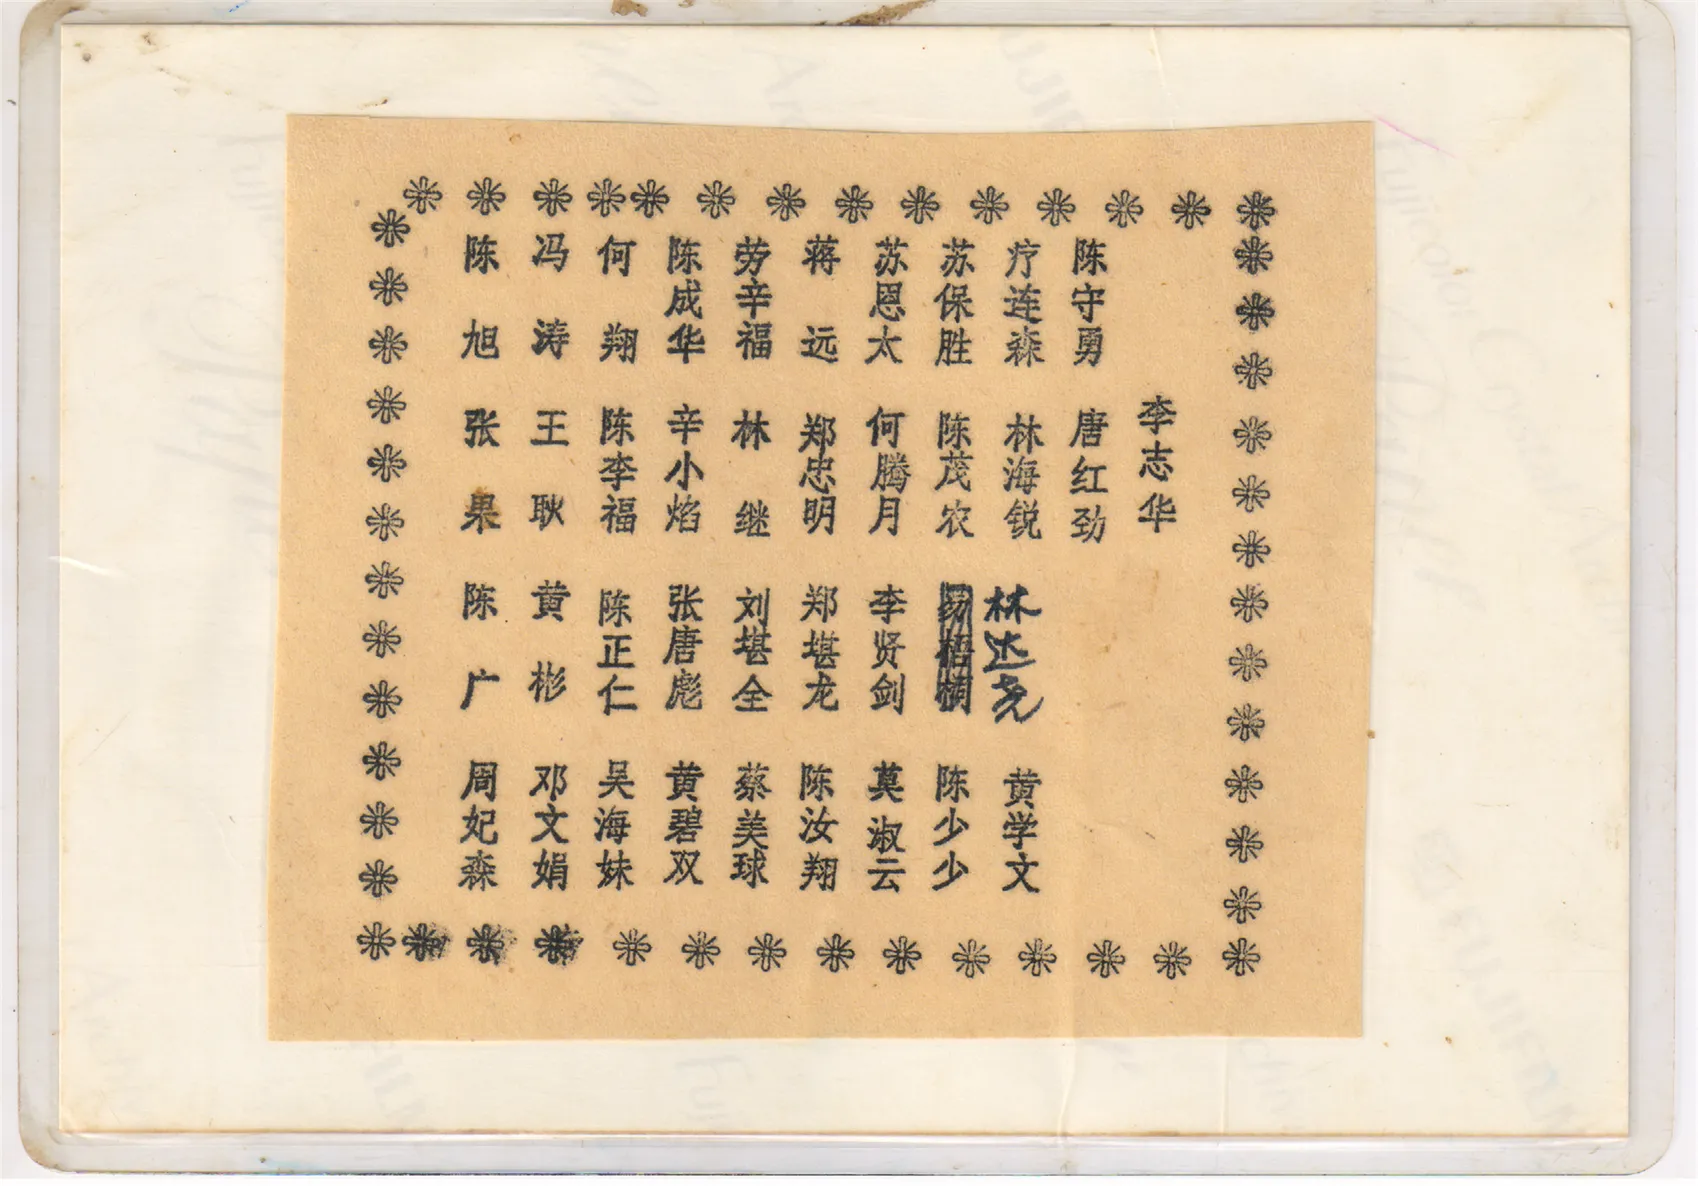 陈旭
冯涛
何翔
陈成华
劳辛福
蒋远
苏恩太
苏保胜
疗连森
陈守勇
李志华
张果
王耿
陈李福
辛小焰
林继
郑忠明
何腾月
陈茂农
林海锐
唐红劲
陈广
黄彬
陈正仁
张唐彪
刘堪全
郑堪龙
李贤剑
林达尧
周妃森
邓文娟
吴海妹
黄碧双
蔡美球
陈汝翔
莫淑云
陈少少
黄学文